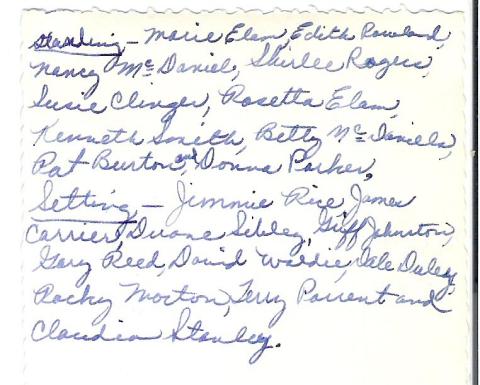 Standing - Marie Elam, Edith Rowland,
Nancy McDaniel, Shirlee Rogers,
Susie Clinger, Rosetta Elam,
Kenneth Smith, Betty McDaniels,
Pat Burton and Donna Parker.
Setting - Jimmie Rice James
Carrier, Duane Sibley, Griff Johnston,
Gary Reed, David Waldie, Dale Daley,
Rocky Morton, Terry Parrent and
Claudia Stanley.